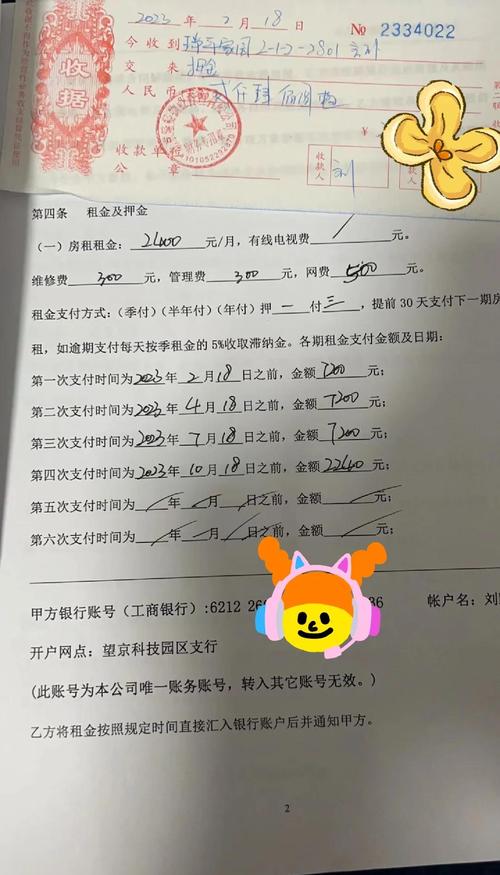 2023年2月18日 № 2334022
今收到 2-1-2-2801
交来 押金
人民币
收据
收款单位
公章
收款人
收款人
第四条 租金及押金
（一）房租租金：2400元/月，有线电视费/元。
维修费300元，管理费300元，网费500元；
租金支付方式：（季付）（半年付）（年付）押一付三，提前30天支付下一期房
租，如逾期支付每天按季租金的5%收取滞纳金。各期租金支付金额及日期：
第一次支付时间为2023年2月18日之前，金额7200元；
第二次支付时间为2023年4月18日之前，金额7200元；
第三次支付时间为2023年7月18日之前，金额7200元；
第四次支付时间为2023年10月18日之前，金额22400元；
第五次支付时间为/年/月/日之前，金额/元；
第六次支付时间为/年/月/日之前，金额/元；
甲方银行账号（工商银行）:6212 26 36 帐户名：刘
开户网点：望京科技园区支行
(此账号为本公司唯一账务账号，转入其它账号无效。)
乙方将租金按照规定时间直接汇入银行账户后并通知甲方。
2